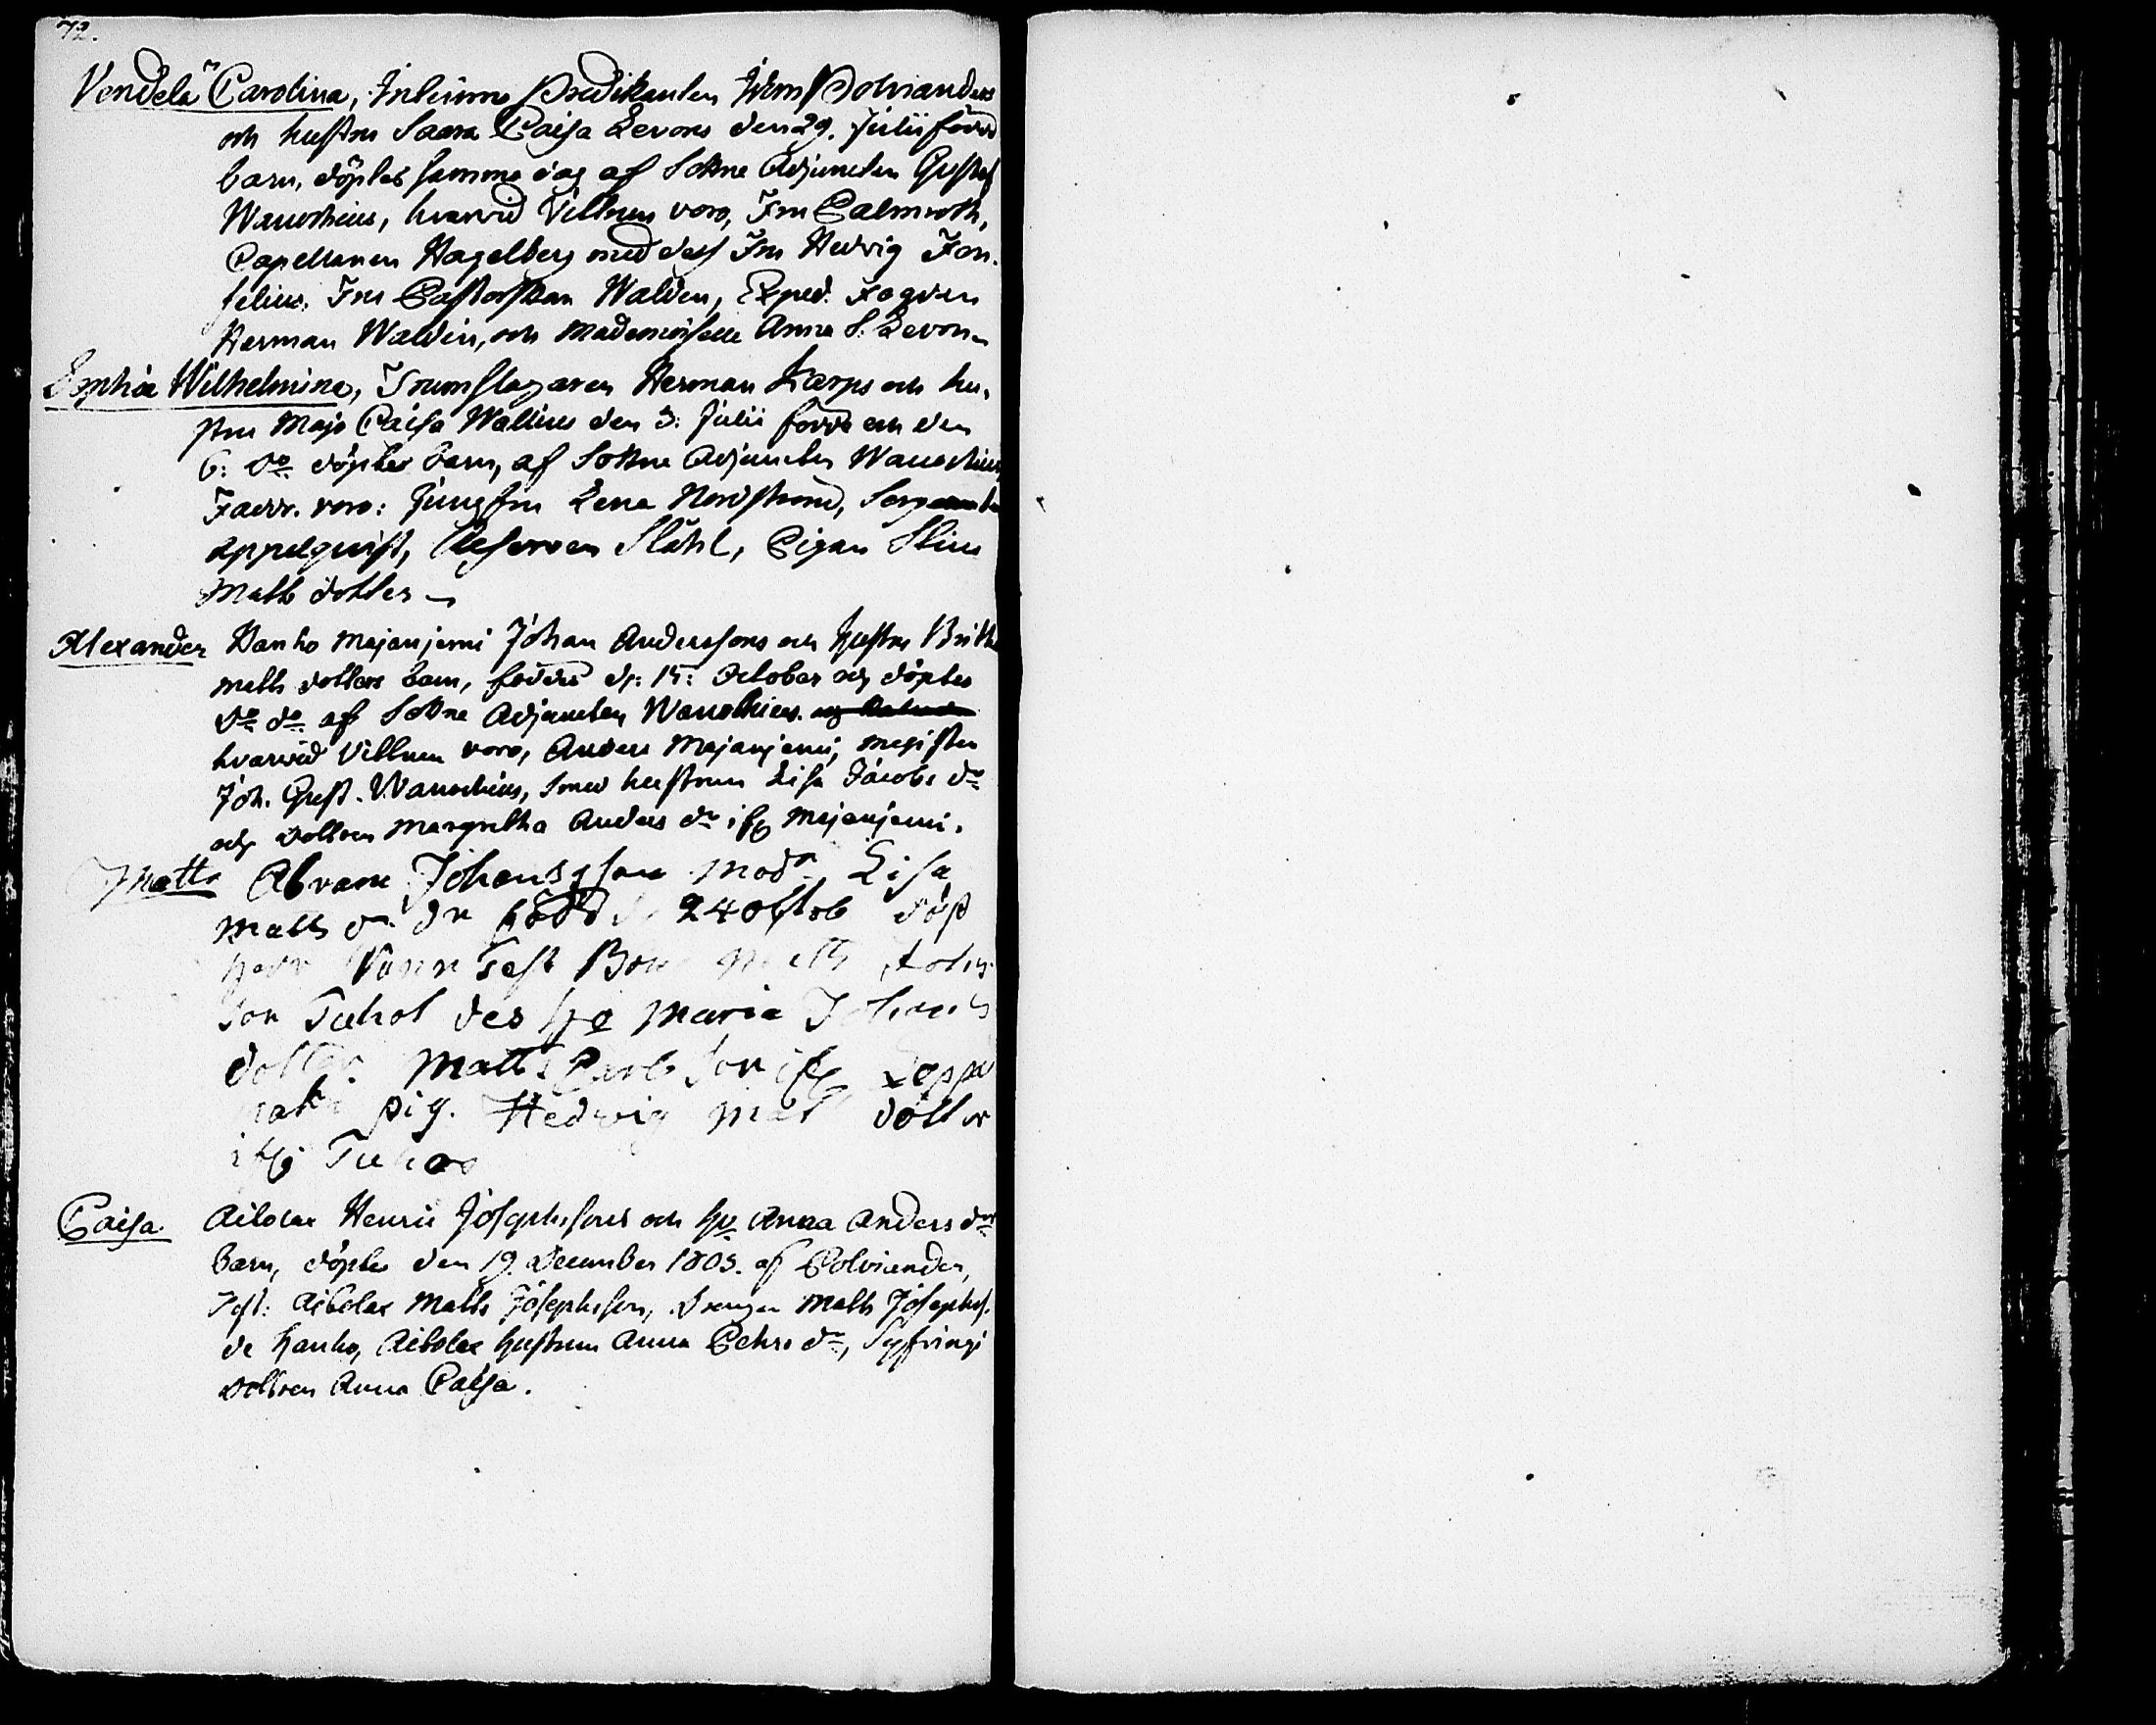 72.
Vendela Carolina, Interims Predikanten Herm Polvianders
och hustrus Saara Caisa Levons den 29. Julii född
barn, döptes samma dag af Sokne Adjuncten Gustaf
Wanochius, hvarvid Vittnen voro, Fru Calmroth,
Capellanen Hagelberg med dess Fru Hedvig Fon-
selius. Fru Pastorskan Walden, Exped. Fogden
Herman Walden, och Mademoiselle Anna S. Levon
Sophia Wilhelmina, Trumslagaren Herman Karps och hu-
strus Maja Caisa Wallius den 3: Julii född och den
6: do döptes barn, af Sokne Adjuncten Wanochius
Fadd. voro: Jungfru Lena Nordström,
Appelquist, Reserven Ståhl, Pigan Stina
Matts dotter
Alexander Hanho Majanjemi Johan Anderssons och hustrus Britha
Matts dotters barn, föddes d. 15: October och döptes
do do af Sokne Adjuncten Wanochius.
hvarvid Vittnen voro, Anders Majanjemi, Magister
Joh. Gust. Wanochius, hustrun Lisa Jacobs dr
och dottren Margretha Anders dr ifr Majanjemi.
Matts Abram Johansson Mod. Lisa
Matts dr född d. 24 Octob döpt
Herr Wann Test Bon Matts
son Tuhol des ho Maria Johans
dotter Matts Carlsson ifr
pig. Hedvig Mats dotter
ifr
Caisa Aibolax Henric Josephssons och ho Anna Anders drs
barn, döptes den 19. December 1803. af Polviander,
Test: Aibolax Matts Josephsson, Drengen Matts Josephss.
de Hanho, Aibolax hustrun Anna Pehrs dr,
dottren Anna Caisa.